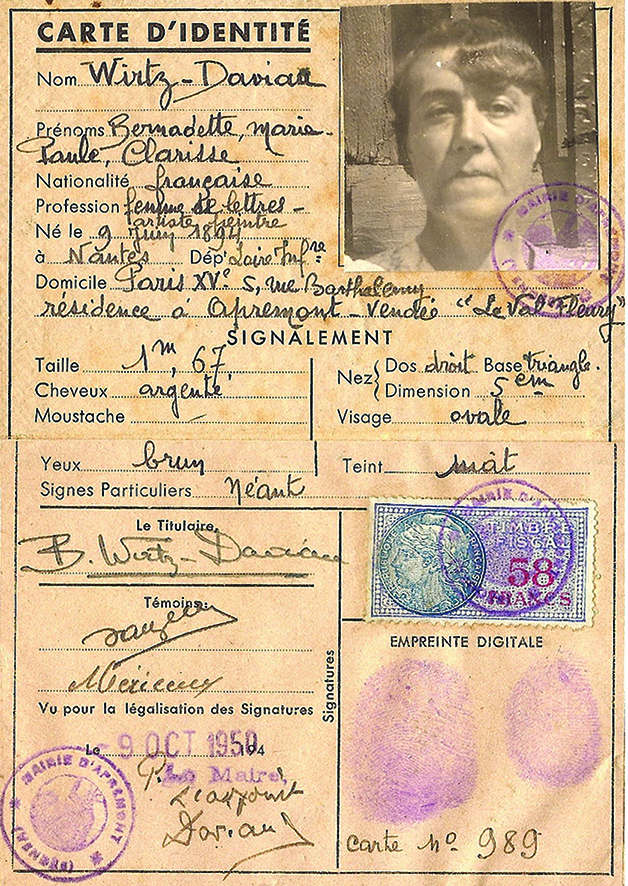 CARTE D'IDENTITÉ
Nom Wirtz-Daviau
Prénoms Bernadette, Marie-
Paule, Clarisse
Nationalité française
Profession femme de lettres -
artiste peintre
Né le 9 Juin 1894
à Nantes Dépt Loire Infre
Domicile Paris XVe 5, rue Barthelemy
résidence à Apremont - Vendée "Le Val Fleury"
SIGNALEMENT
Taille 1m,67
Cheveux argenté
Moustache
Nez Dos droit Base triangle.
Dimension 5cm
Visage ovale
Yeux brun Teint mât
Signes Particuliers Néant
Le Titulaire,
B. Wirtz-Daviau
Témoins:
Vu pour la légalisation des Signatures
Signatures
Le - 9 OCT 1950 194
Le Maire,
MAIRIE D'APREMONT
(VENDÉE)
TIMBRE
FISCAL
58
FRANCS
EMPREINTE DIGITALE
carte No 989